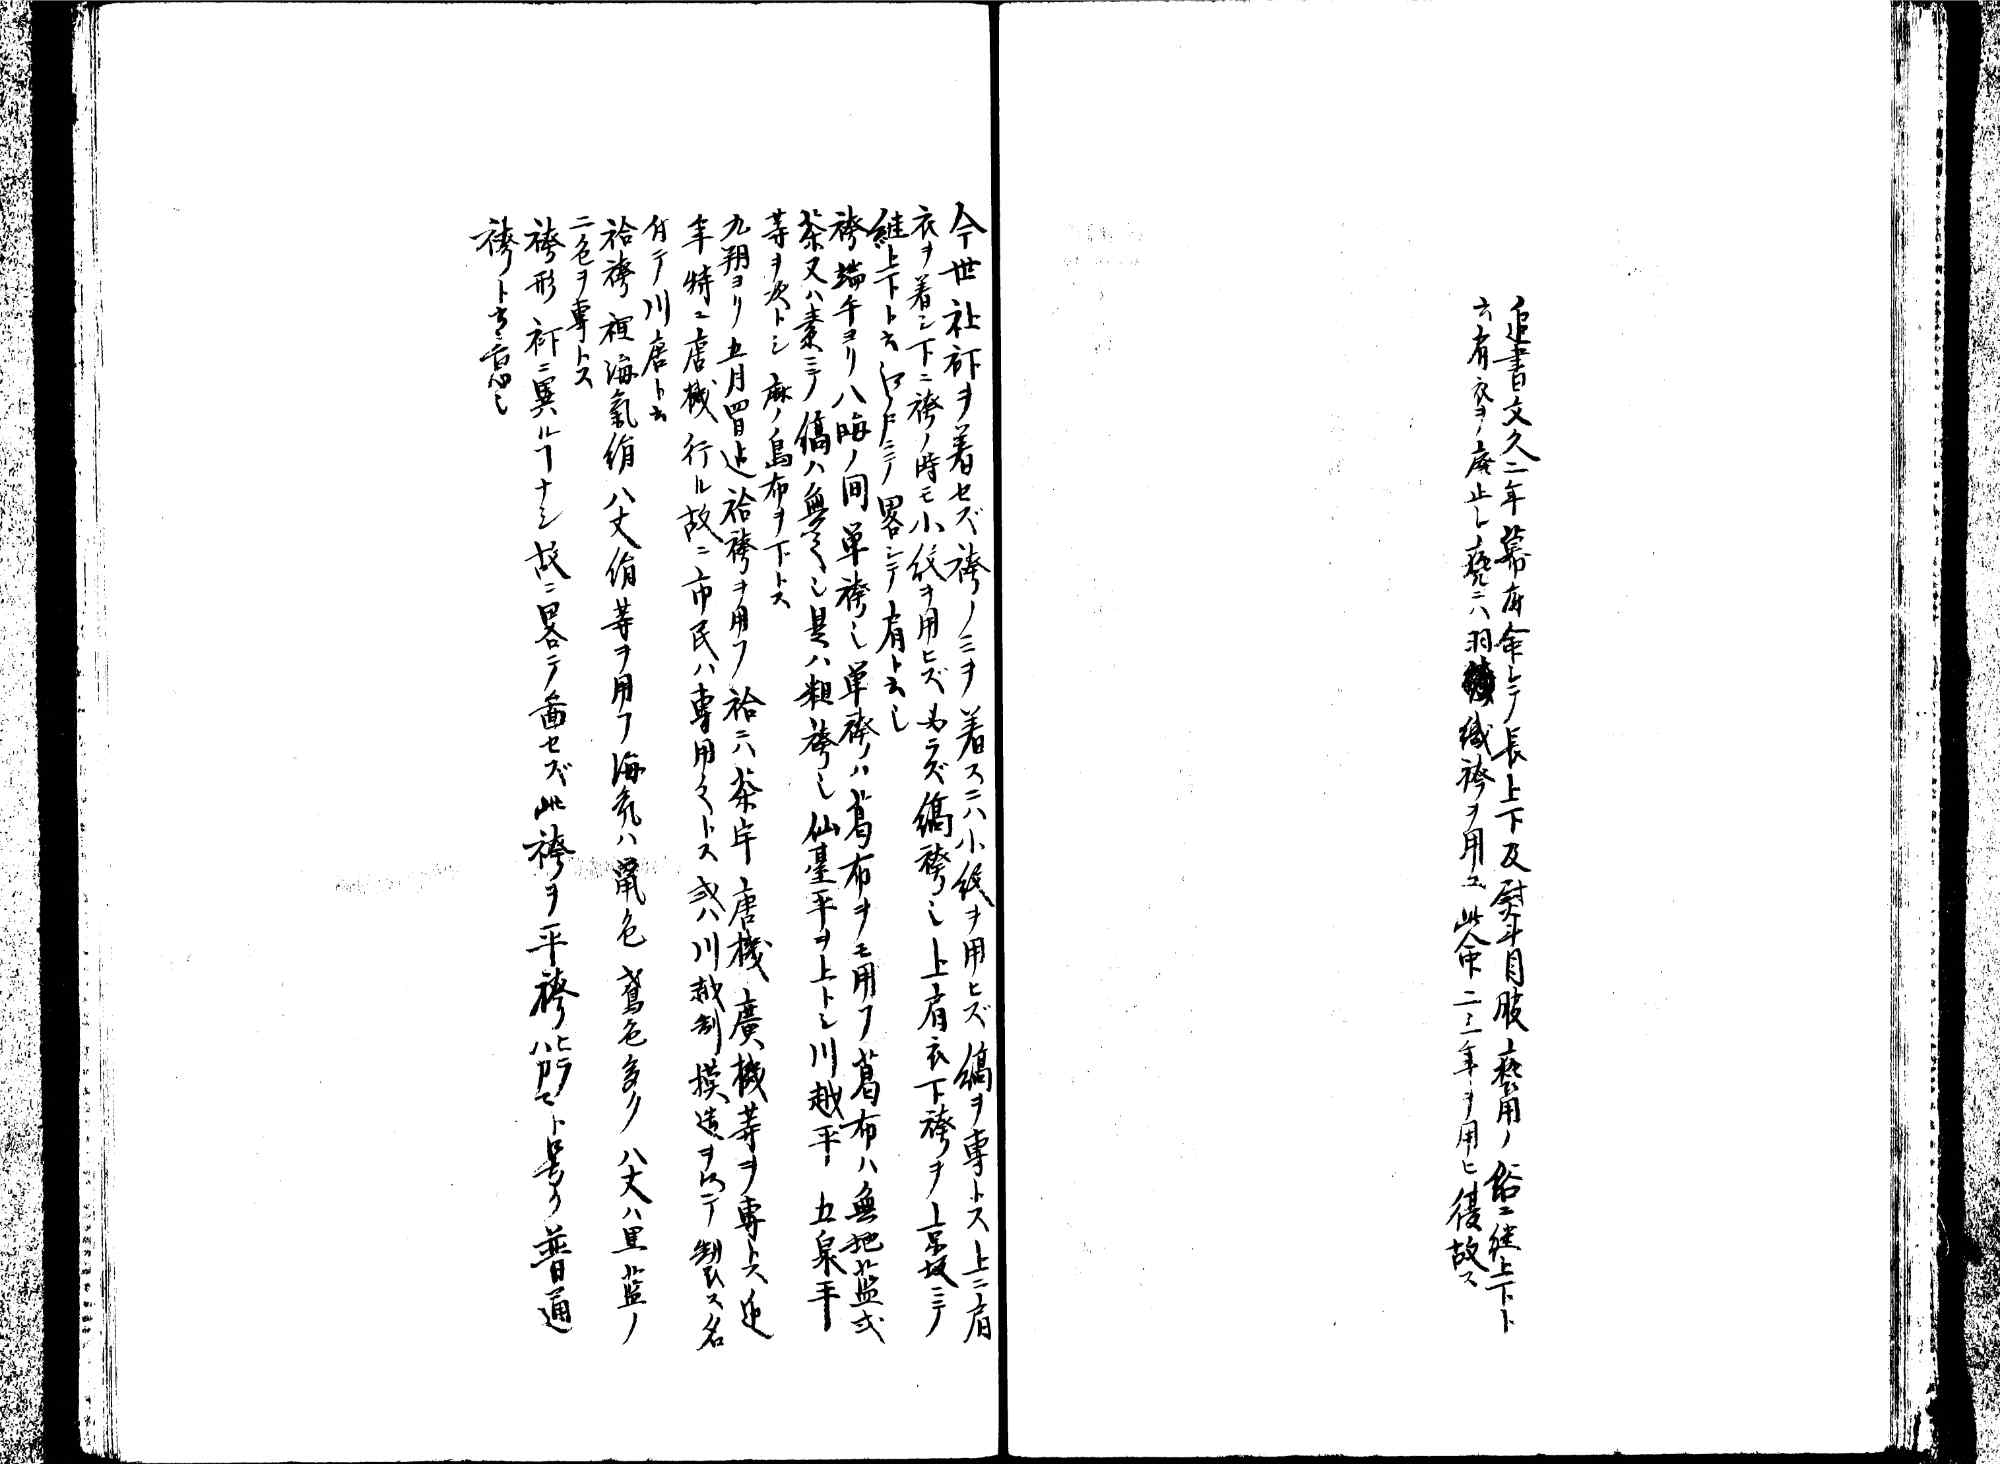 追書文久二年幕府命シテ長上下及熨斗目服藝用ノ俗ニ継上下ト
云肩衣ヲ廃止シ藝ニハ羽織袴ヲ用ユ此命二三年ヲ用ヒ復故ス
今世社裃ヲ着セズ袴ノミヲ着スニハ小紋ヲ用ヒズ縞ヲ専トス上ニ肩
衣ヲ着シ下ニ袴ノ時モ小紋ヲ用ヒズ必ラズ縞袴也上肩衣下袴ヲ京坂ニテ
継上下ト云江戸ニテ畧シテ肩ト云也
袴端午ヨリ八晦ノ間単袴也単袴ハ葛布ヲモ用フ葛布ハ無地藍或
茶又ハ素ニテ縞ハ無之也是ハ粗袴也仙臺平ヲ上トシ川越平五泉平
等ヲ次トシ麻ノ島布ヲ下トス
九朔ヨリ五月四日迄袷袴ヲ用フ袷ニハ茶宇唐機廣機等ヲ専トス近
年特ニ唐機行ル故ニ市民ハ専用之トス或ハ川越制模造ヲ以テ製ス名
付テ川唐ト云
袷袴裡海氣絹八丈絹等ヲ用フ海気ハ鼠色鳶色多ク八丈ハ黒藍ノ
二色ヲ専トス
袴形裃ニ異ルヿナシ故ニ畧テ啚セズ此袴ヲ平袴ヒラバカマト号ク普通
袴ト云意也